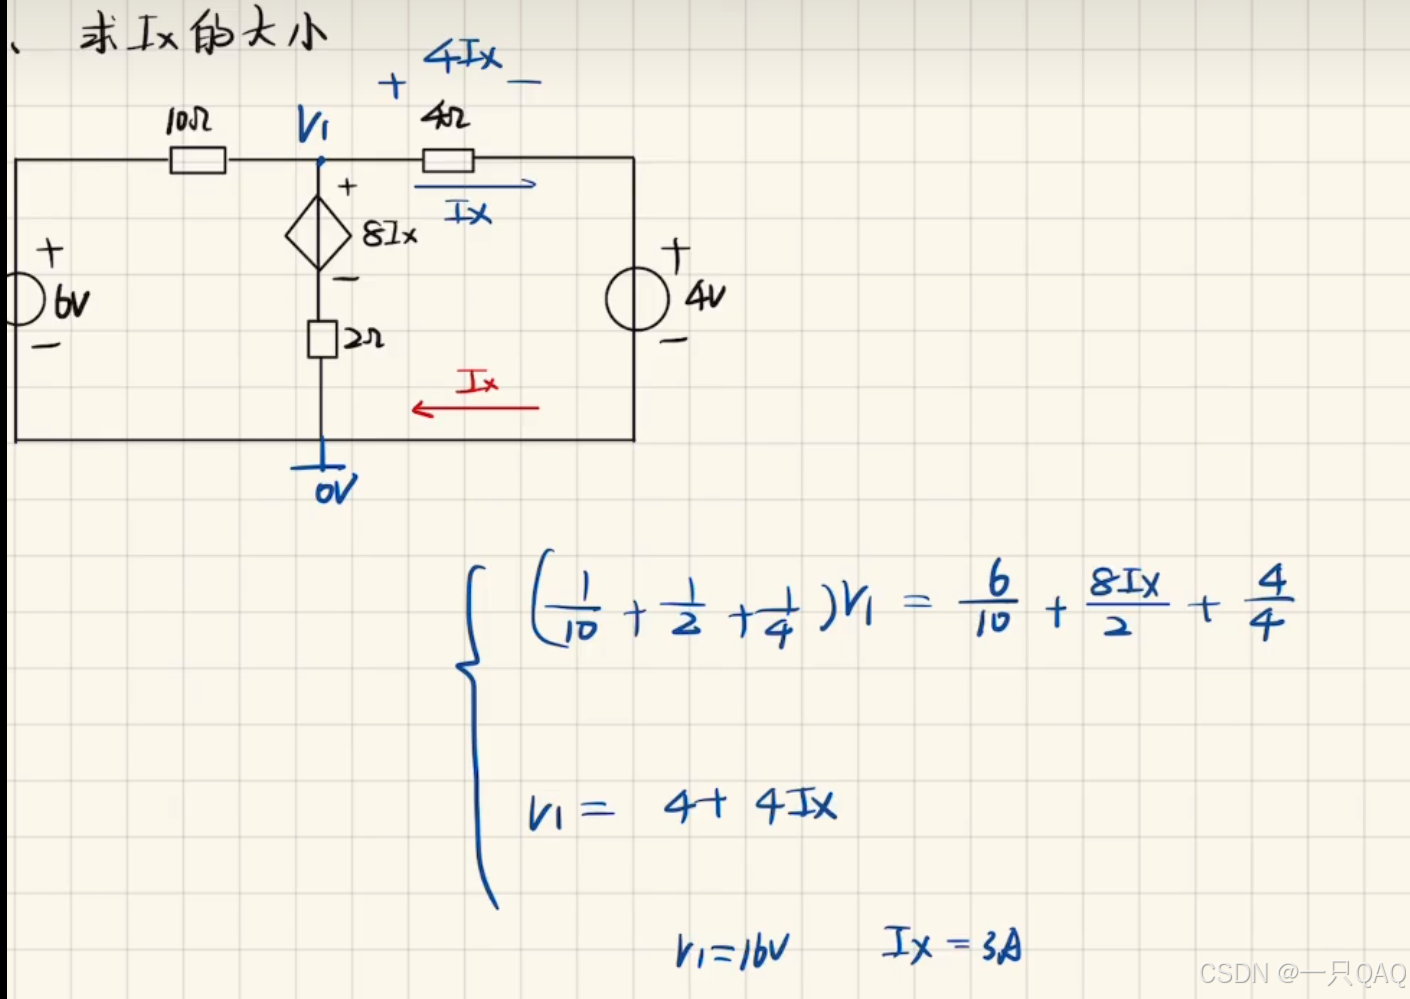 、求Ix的大小
+ 4Ix −
10Ω
V1
4Ω
+
Ix
8Ix
−
+
6V
−
2Ω
+
4V
−
Ix
0V
(1/10 + 1/2 + 1/4)V1 = 6/10 + 8Ix/2 + 4/4
V1 = 4+ 4Ix
V1=16V Ix = 3A
CSDN @一只QAQ